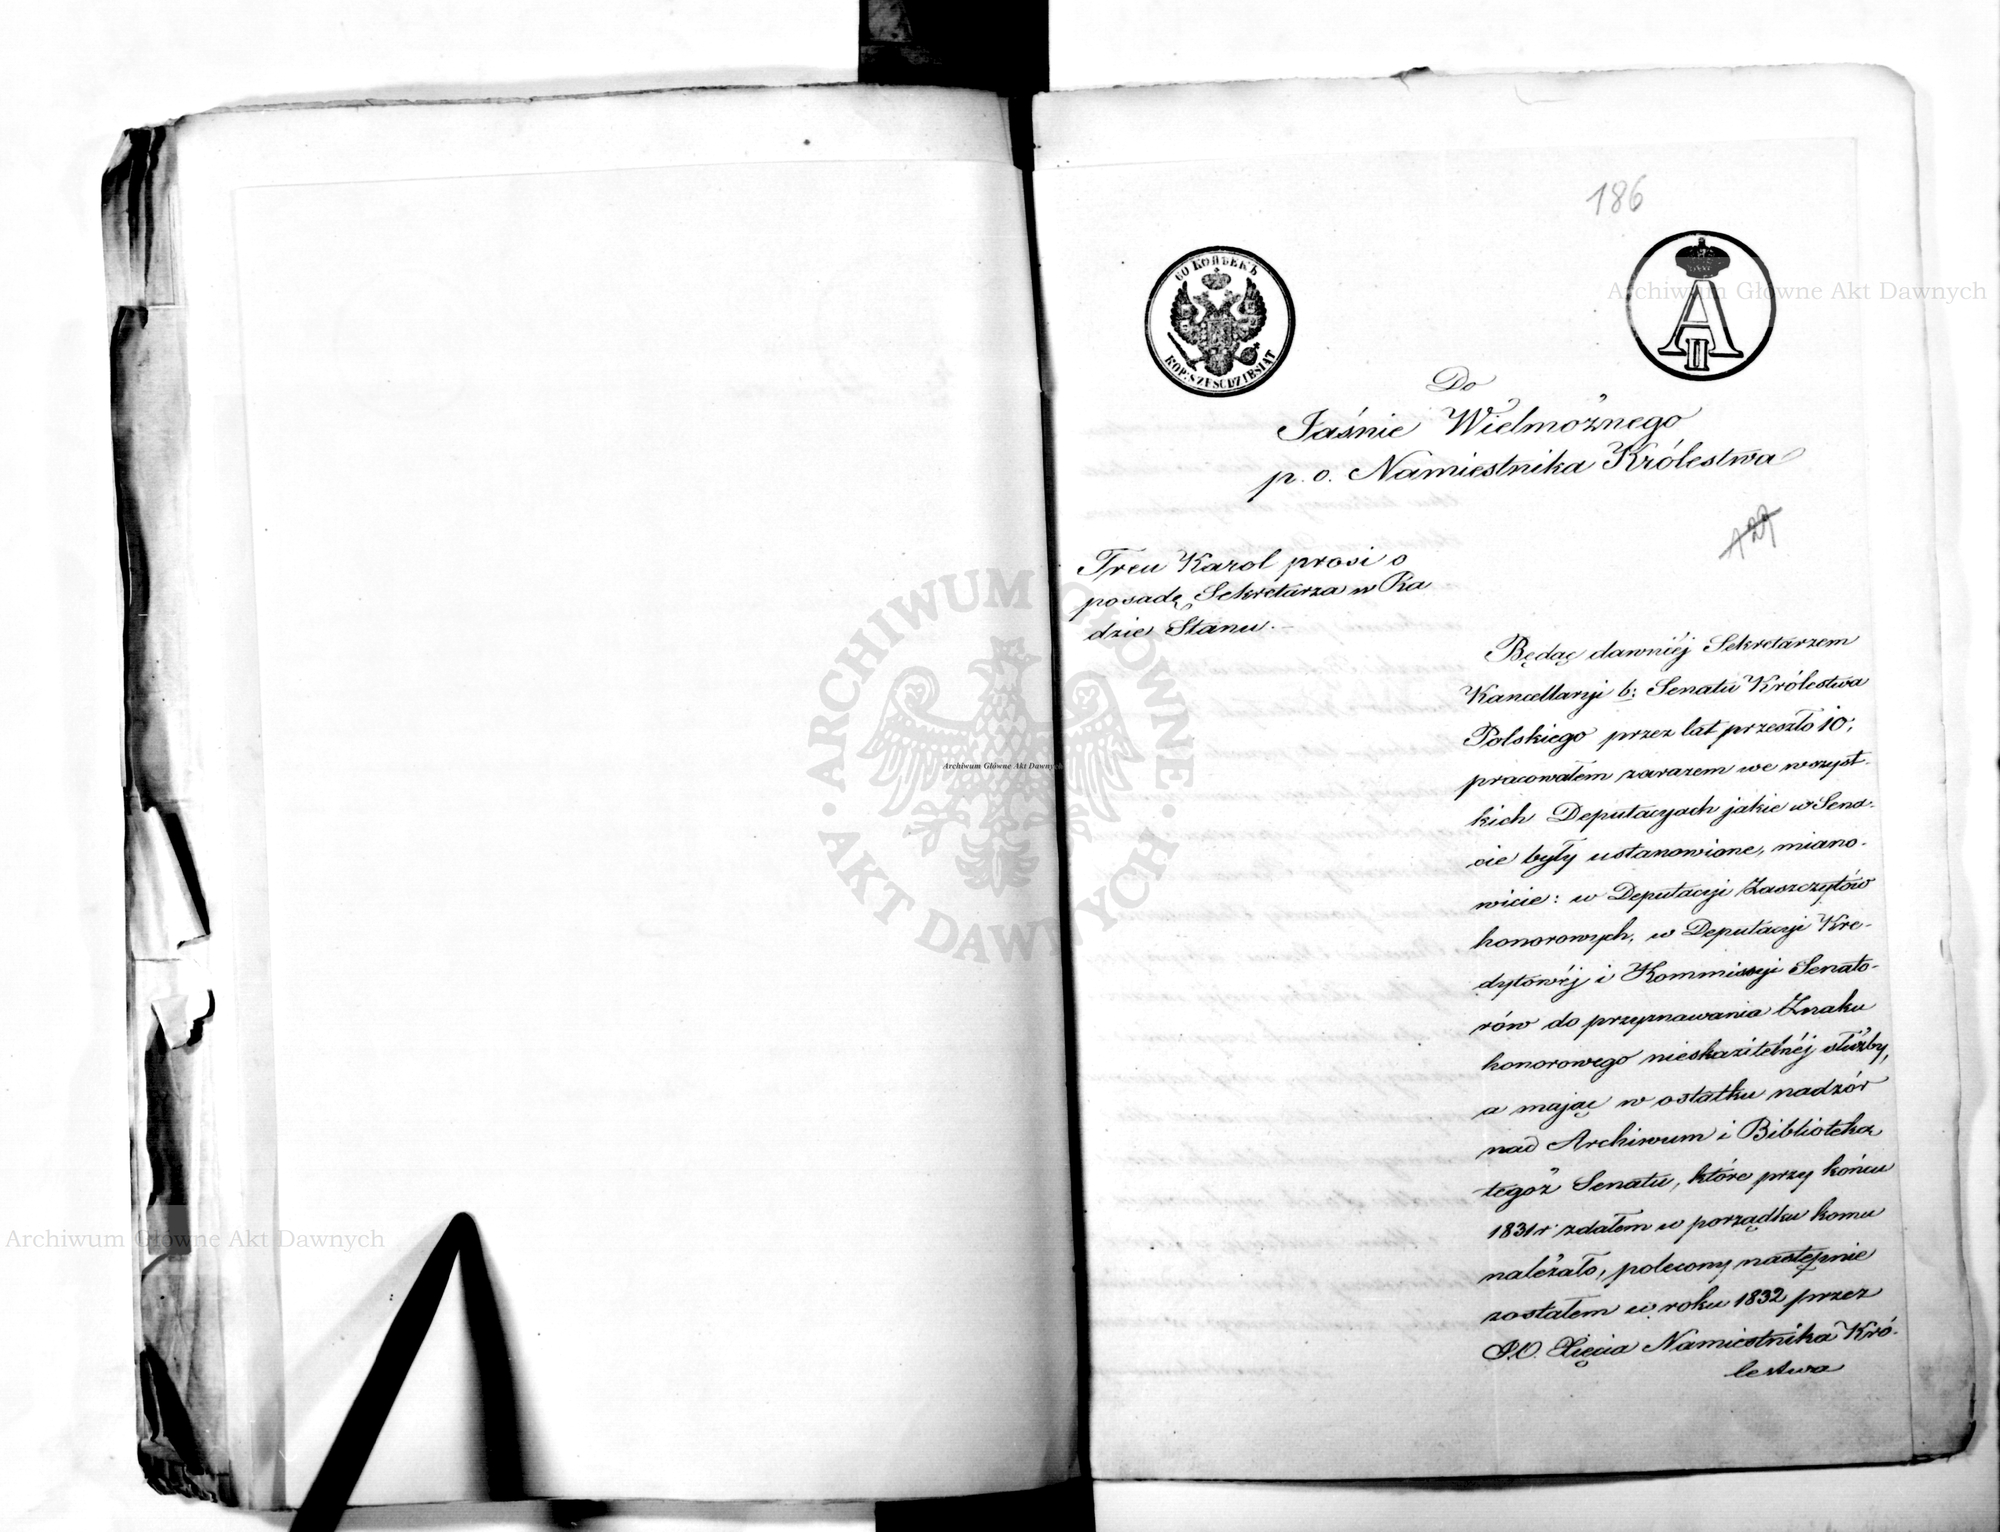 186
60 КОПѢЕКЪ
KOP. SZEŚĆDZIESIĄT
A II
Do
Jaśnie Wielmożnego
p. o. Namiestnika Królestwa
129
Treu Karol prosi o
posadę Sekretarza w Ra
dzie Stanu.-
Będąc dawniéj Sekretarzem
Kancellaryi b: Senatu Królestwa
Polskiego przez lat przeszło 10,
pracowałem zarazem we wszyst-
kich Deputacyach jakie w Sena-
cie były ustanowione, miano-
wicie: w Deputacyi Zaszczytów
honorowych, w Deputacyi Kre-
dytowéj i Kommissyi Senato-
rów do przyznawania Znaku
honorowego nieskazitelnéj służby,
a mając w ostatku nadzór
nad Archiwum i Biblioteką
tegoż Senatu, które przy końcu
1831 r. zdałem w porządku komu
należało, polecony następnie
zostałem w roku 1832 przez
J.O. Xięcia Namiestnika Kró-
lestwa
Archiwum Główne Akt Dawnych
ARCHIWUM GŁÓWNE AKT DAWNYCH
Archiwum Główne Akt Dawnych
Archiwum Główne Akt Dawnych